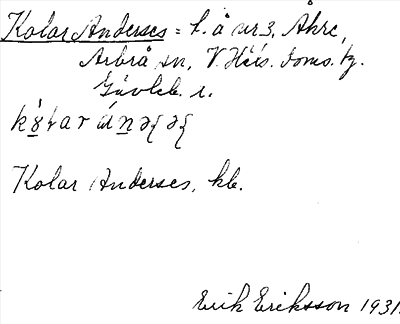 Kolar Anderses = l. å nr 3, Åhre,
Arbrå sn, V. Häls. doms. tz.
Gävleb. l.
Kolar Anderses, kb.
Erik Eriksson 1931.